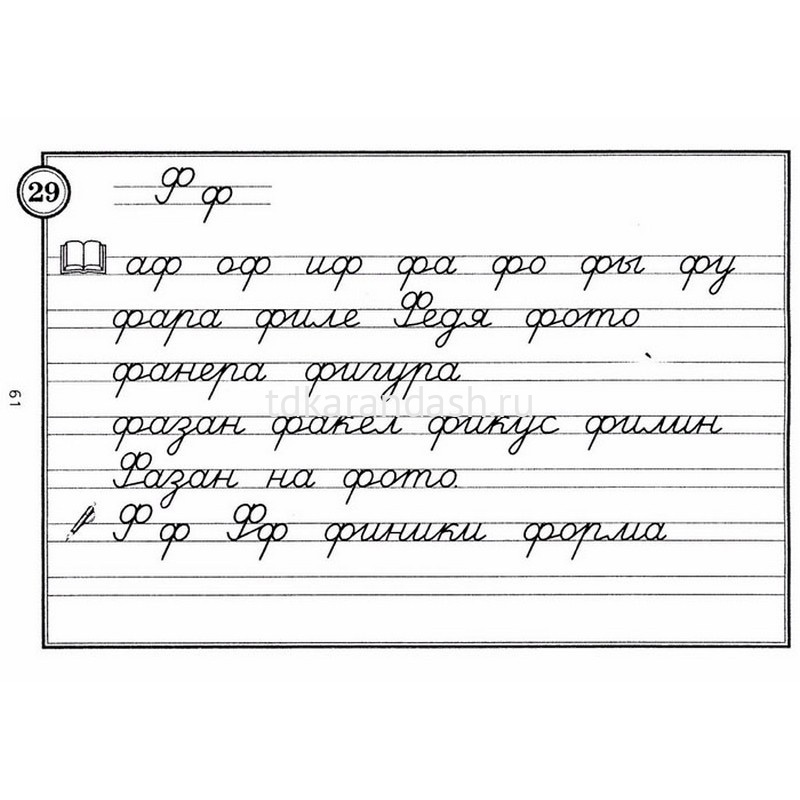 29
Ф ф
аф оф иф фа фо фы фу
фара филе Федя фото
фанера фигура
tdkarandash.ru
фазан факел фикус филин
Фазан на фото.
Ф ф Фф финики форма
61